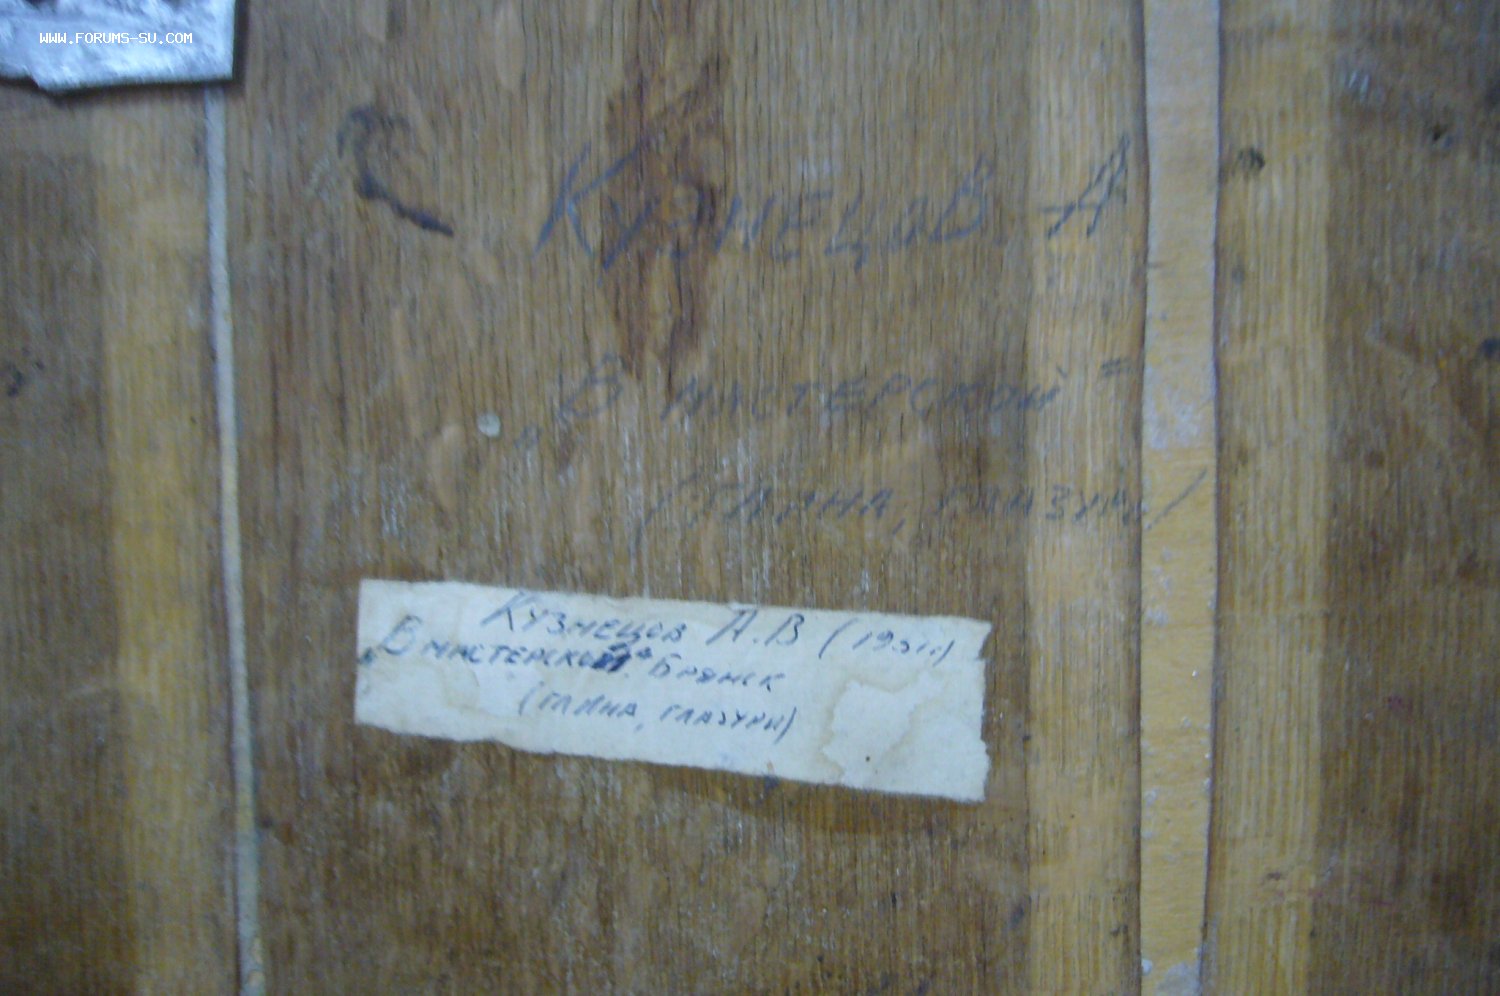 WWW.FORUMS-SU.COM
Кузнецов. А
"В мастерской"
(глина, глазурь)
Кузнецов А.В
"В мастерской" Брянск
(глина, глазури)